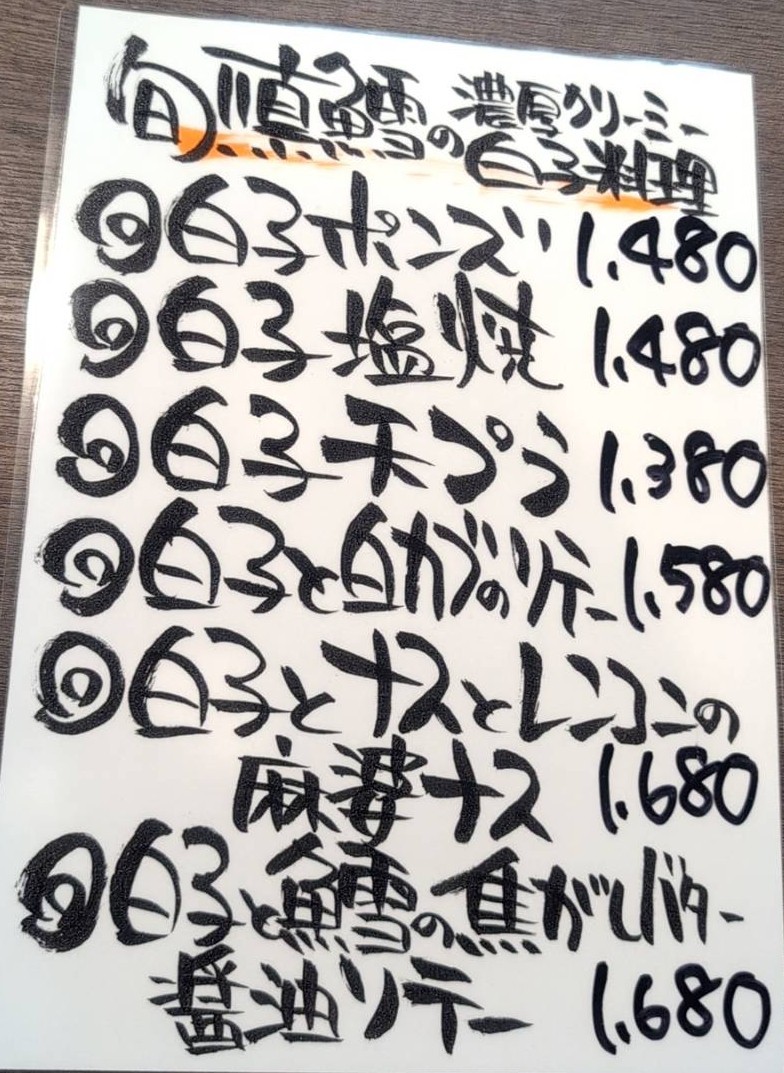 旬真鱈の濃厚クリーミー
白子料理
◎白子ポンズ 1.480
◎白子塩焼 1.480
◎白子天プラ 1.380
◎白子と白カブのソテー 1.580
◎白子とナスとレンコンの
麻婆ナス 1.680
◎白子と鱈の焦がしバター
醤油ソテー 1.680